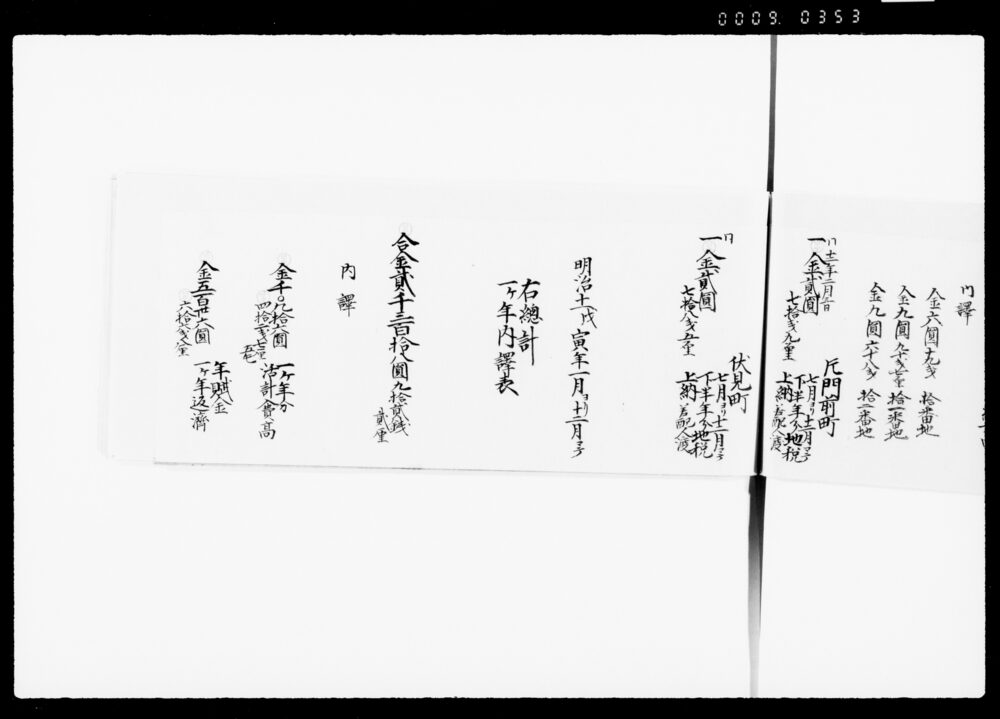 0009. 0353
内譯
金六圓十九戋 拾番地
金九圓九十戋七厘 拾一番地
金九圓六十八戋 拾二番地
一金貳圓
七拾戋九厘
片門前町
七月ヨリ十二月マテ
下半年分地税
上納差配人渡
同
一金貳圓
七拾八戋五厘
伏見町
七月ヨリ十二月マテ
下半年分地税
上納差配人渡
明治十一戊寅年一月ヨリ十二月マテ
右總計
一ヶ年内譯表
合金貳千三百拾八圓九拾貳戋
貳厘
内譯
金千〇九拾六圓
四拾一戋七厘
五毛
一ヶ年分
活計費高
金五百廿六圓
六拾六戋八厘
年賦金
一ヶ年返濟